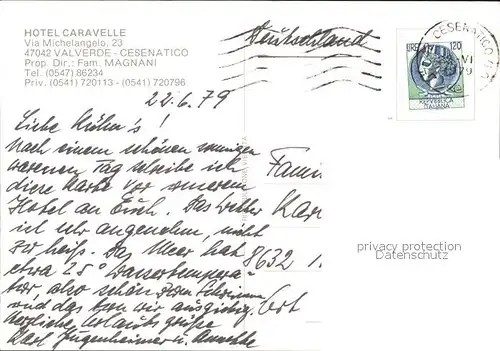 HOTEL CARAVELLE
Via Michelangelo, 23
47042 VALVERDE - CESENATICO
Prop. Dir.: Fam. MAGNANI
Tel. (0547) 86234
Priv. (0541) 720113 - (0541) 720796
Deutschland
CESENATICO
LIRE 120
VI
REPVBBLICA
ITALIANA
22.6.79
Liebe Köhn's!
Nach einem schönen sonnigen
warmen Tag schreibe ich
diese Karte vor unserem
Hotel an Euch. Das Wetter
ist sehr angenehm, nicht
zu heiß. Das Meer hat
etwa 25° Wassertempera-
tur, also schön zum Schwimmen
und das tun wir ausgiebig.
Herzliche Urlaubsgrüße
Karl Jugenheimer u. Annette
Fami
Karl
8632
privacy protection
Datenschutz